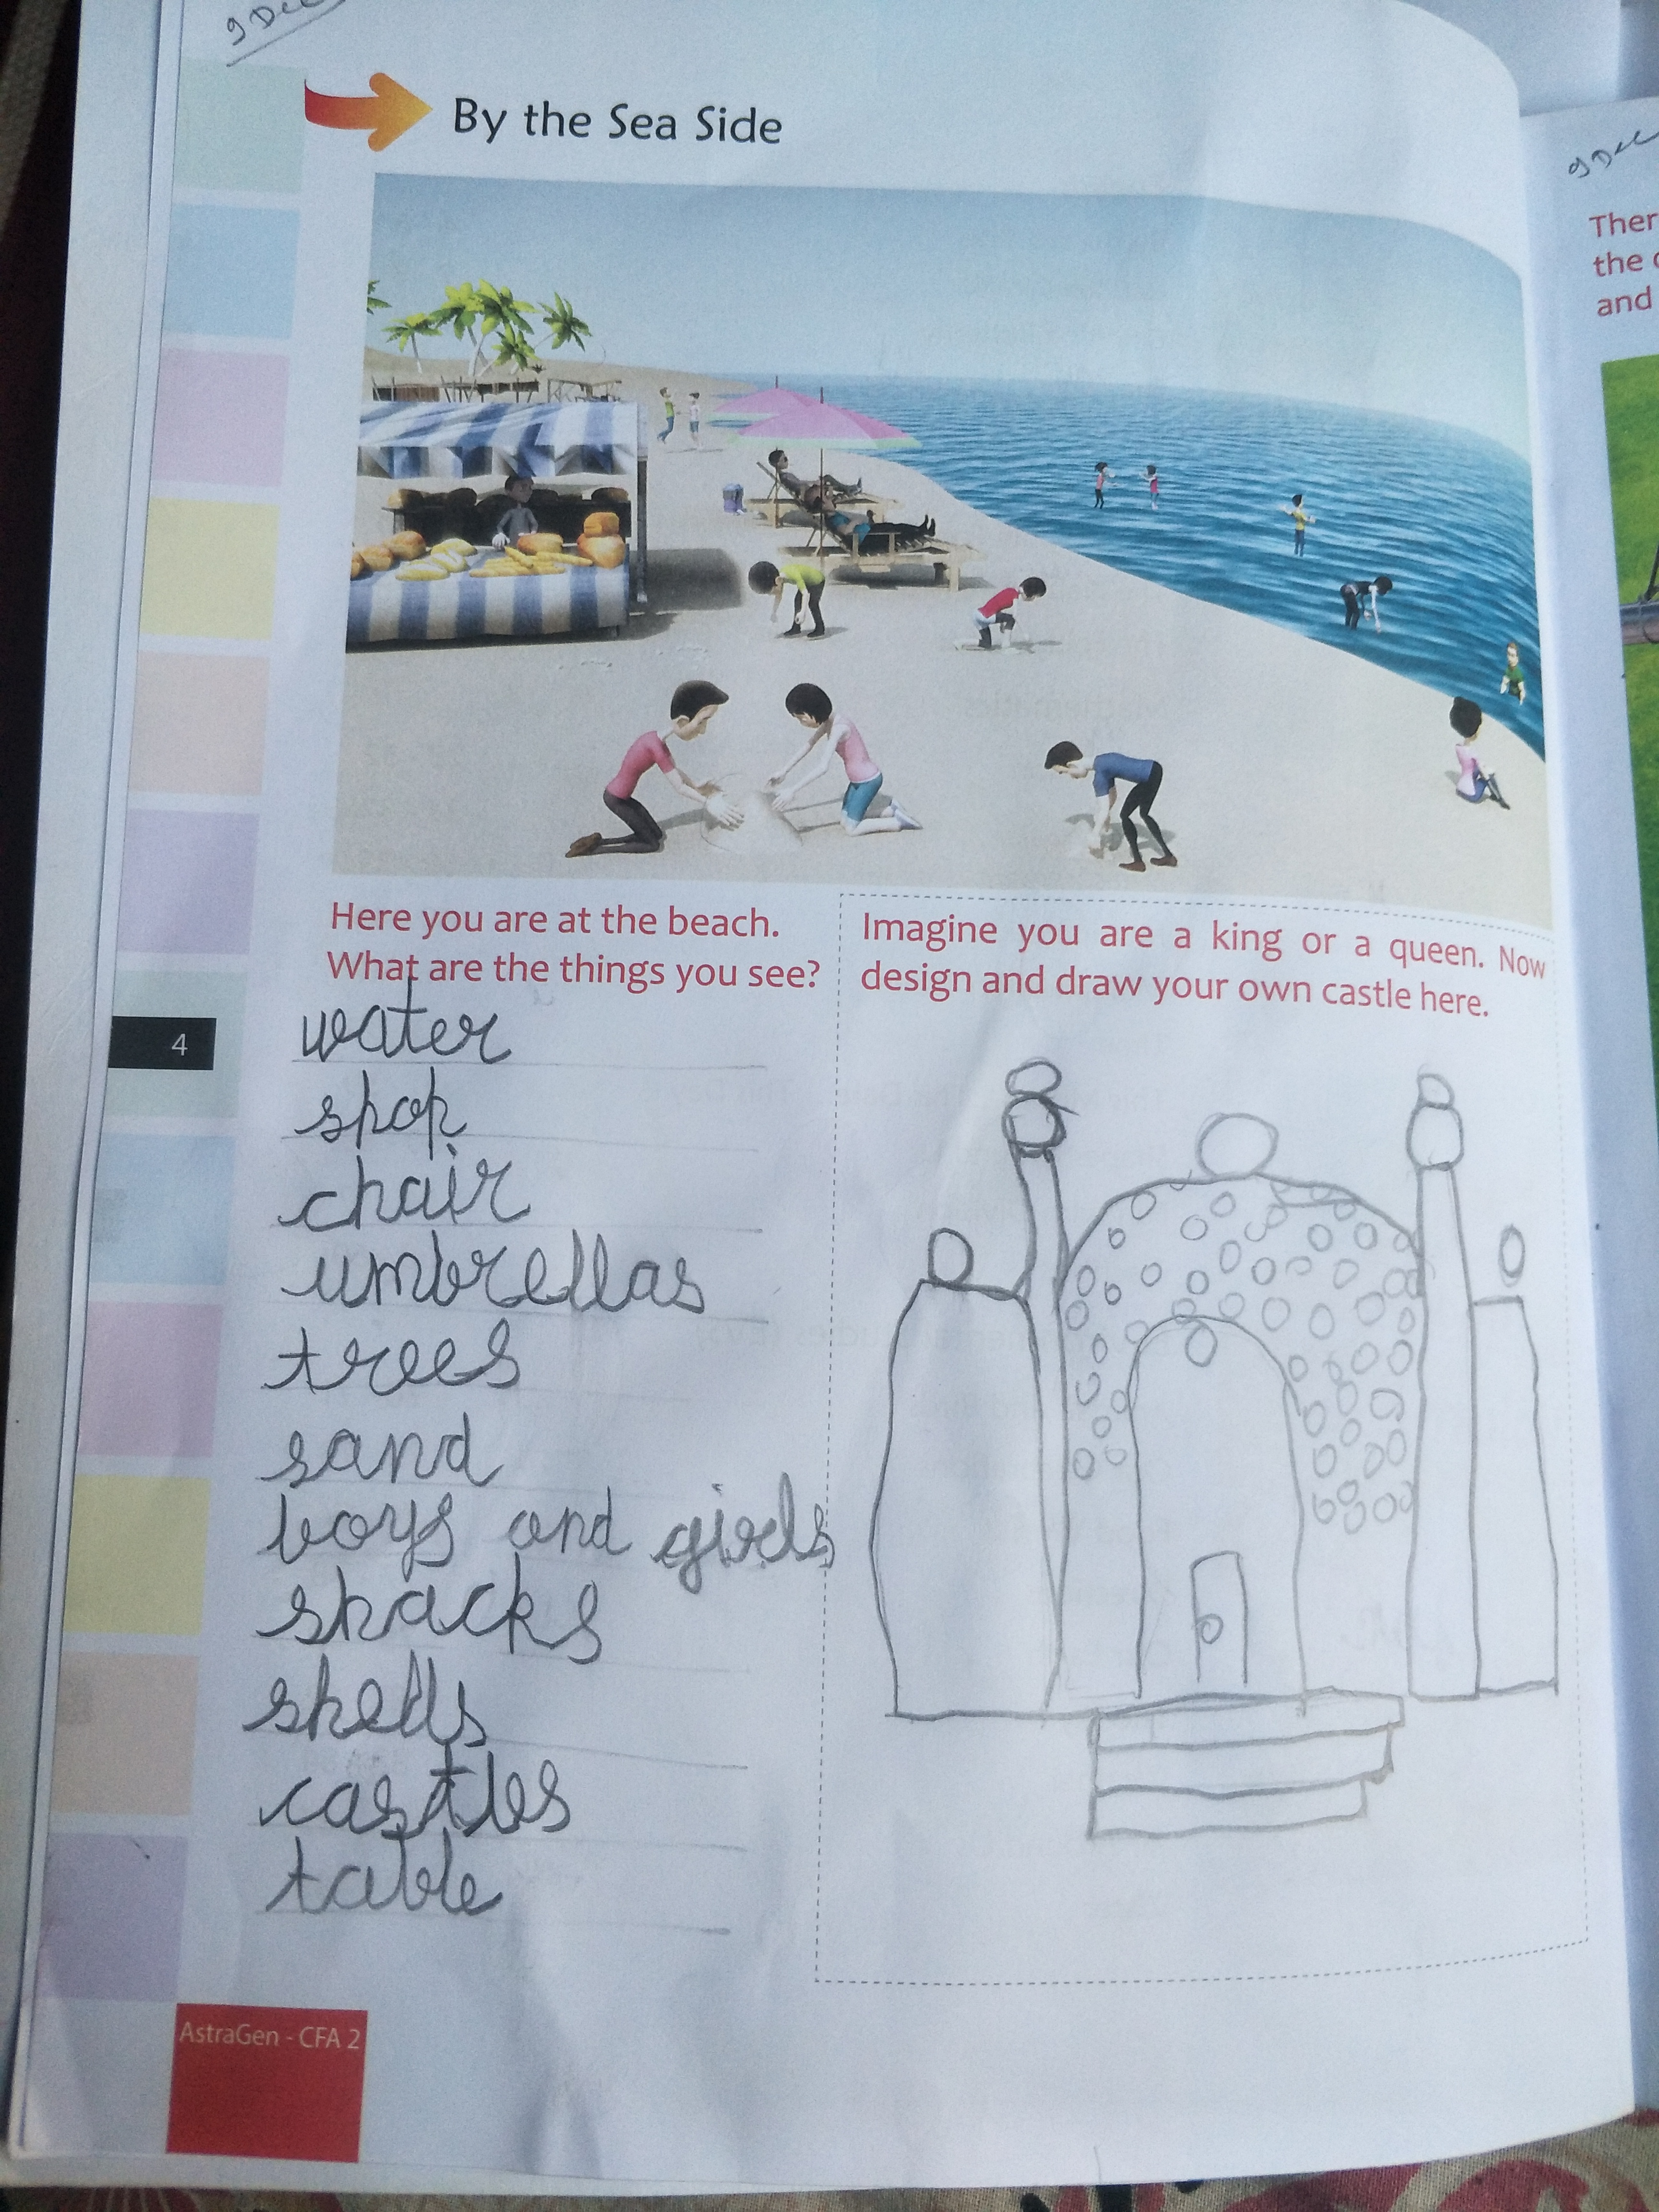 9 Dec
By the Sea Side
Here you are at the beach.
What are the things you see?
water
shop
chair
umbrellas
trees
sand
boys and girls
snacks
shells
castles
table
Imagine you are a king or a queen. Now
design and draw your own castle here.
4
AstraGen - CFA 2
9 Dec
the
and